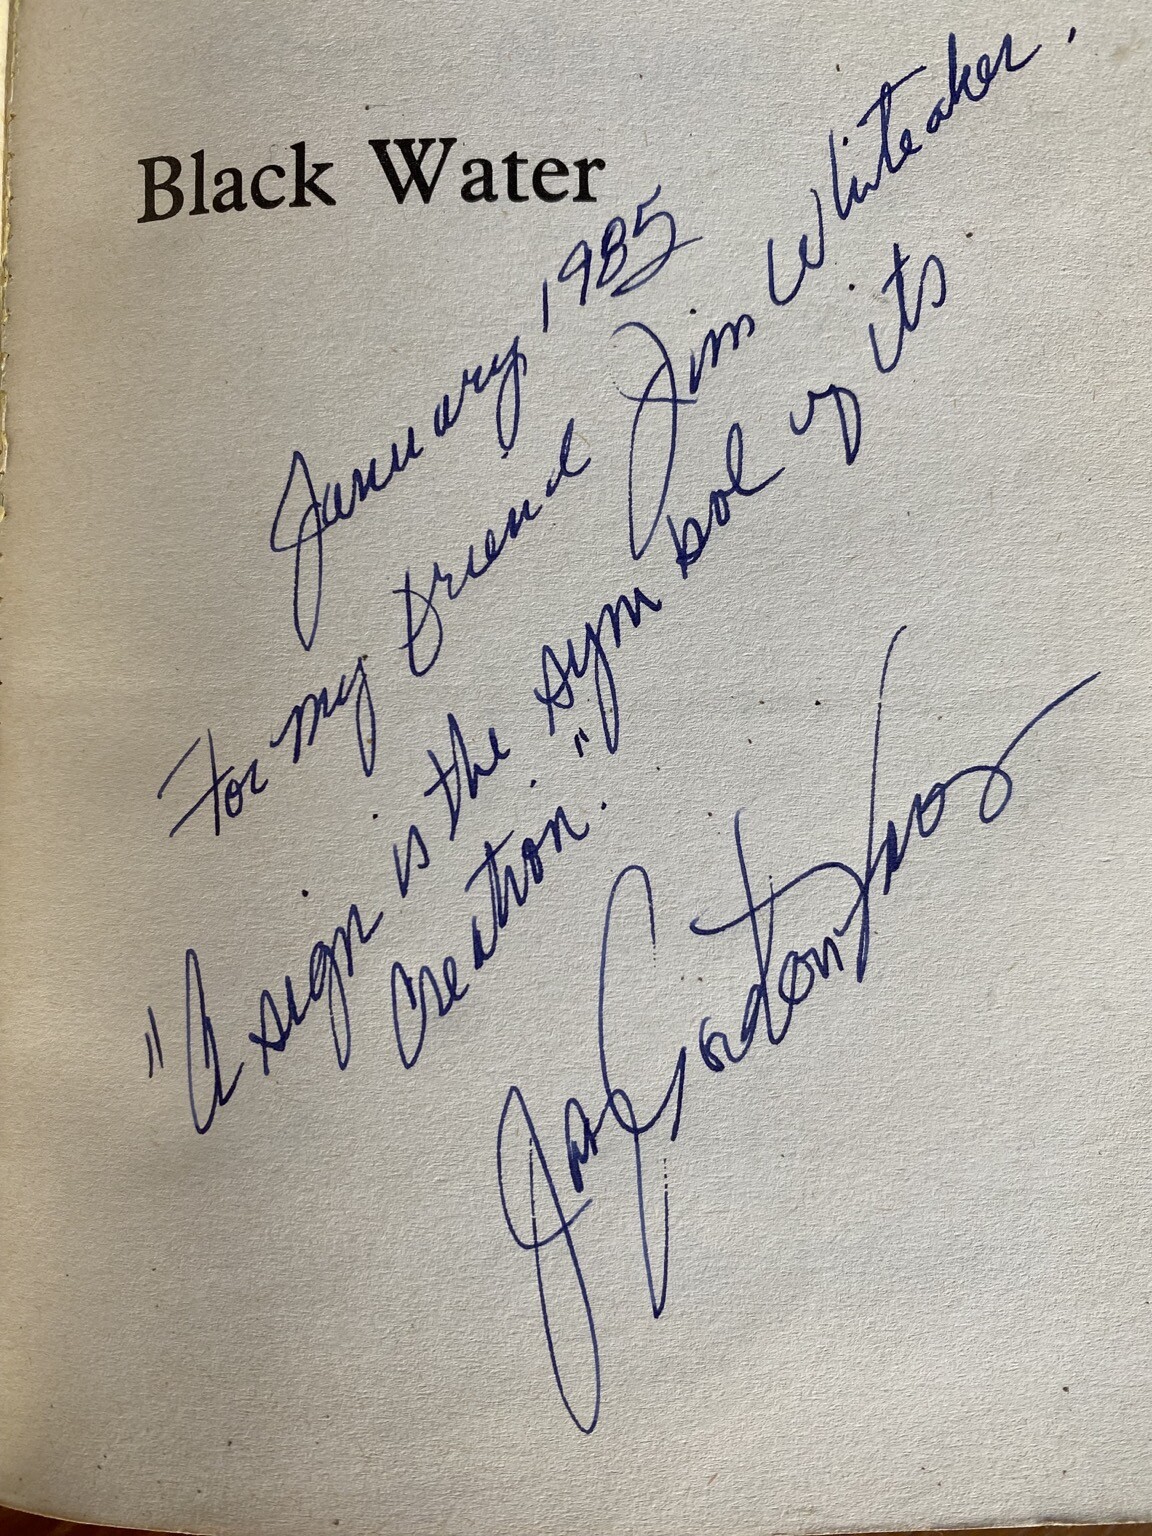 Black Water
January, 1985
For my friend Jim Whiteaker.
"A sign is the symbol of its
creation."